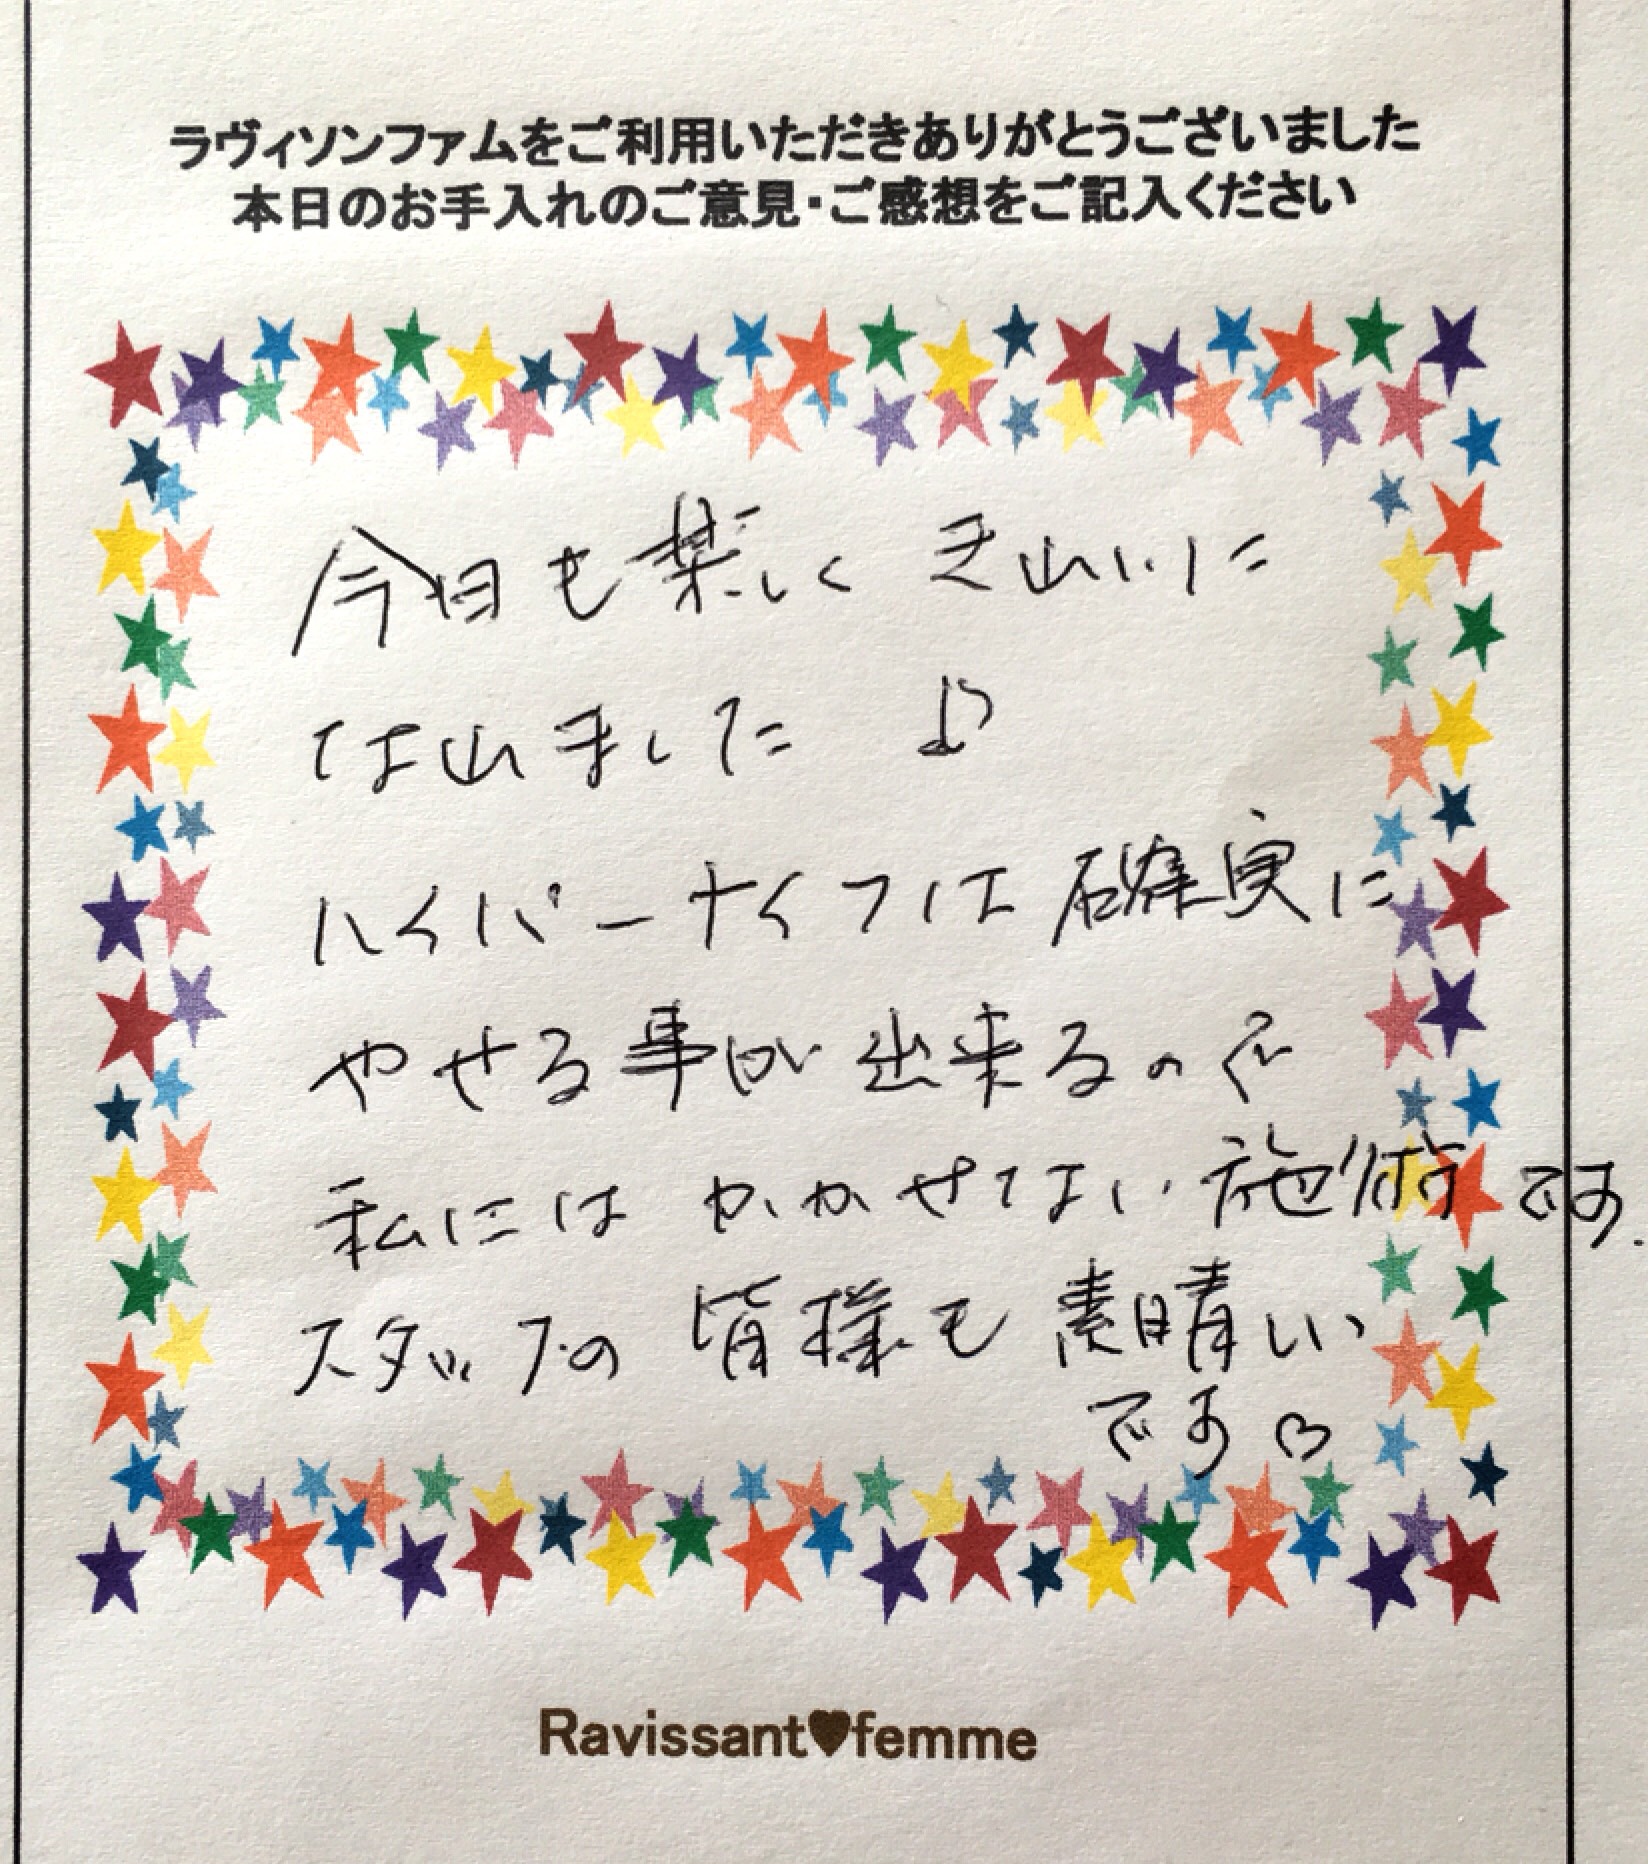 ラヴィソンファムをご利用いただきありがとうございました
本日のお手入れのご意見・ご感想をご記入ください
今日も楽しく きれいに
なれました♪
ハイパーナイフは確実に
やせる事が出来るので
私には かかせない施術です.
スタッフの 皆様も 素晴しい
です♡
Ravissant♥femme